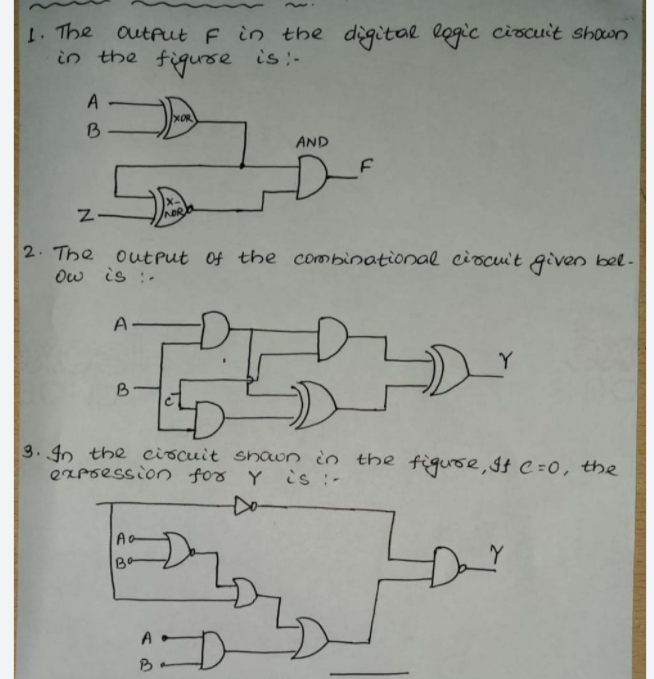 1. The output F in the digital logic circuit shown
in the figure is :-
A
XOR
B
AND
F
X-
NOR
Z
2. The output of the combinational circuit given bel-
ow is :-
A
Y
B
C
3. In the circuit shown in the figure, If C=0, the
expression for Y is :-
A
B
Y
A
B